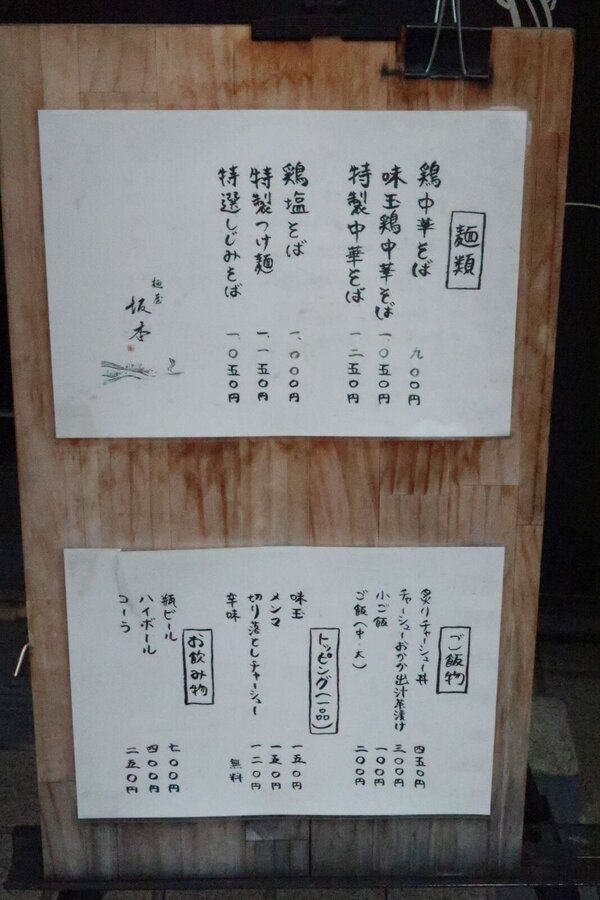 麺類
鶏中華そば 九〇〇円
味玉鶏中華そば 一、〇五〇円
特製中華そば 一二五〇円
鶏塩そば 一、〇〇〇円
特製つけ麺 一、一五〇円
特選しじみそば 一、〇五〇円
麺屋 坂本
ご飯物
炙りチャーシュー丼 四五〇円
チャーシューおかか出汁茶漬け 三〇〇円
小ご飯 一〇〇円
ご飯(中・大) 二〇〇円
トッピング(一品)
味玉 一五〇円
メンマ 一五〇円
切り落としチャーシュー 一二〇円
辛味 無料
お飲み物
瓶ビール 七〇〇円
ハイボール 四〇〇円
コーラ 二五〇円